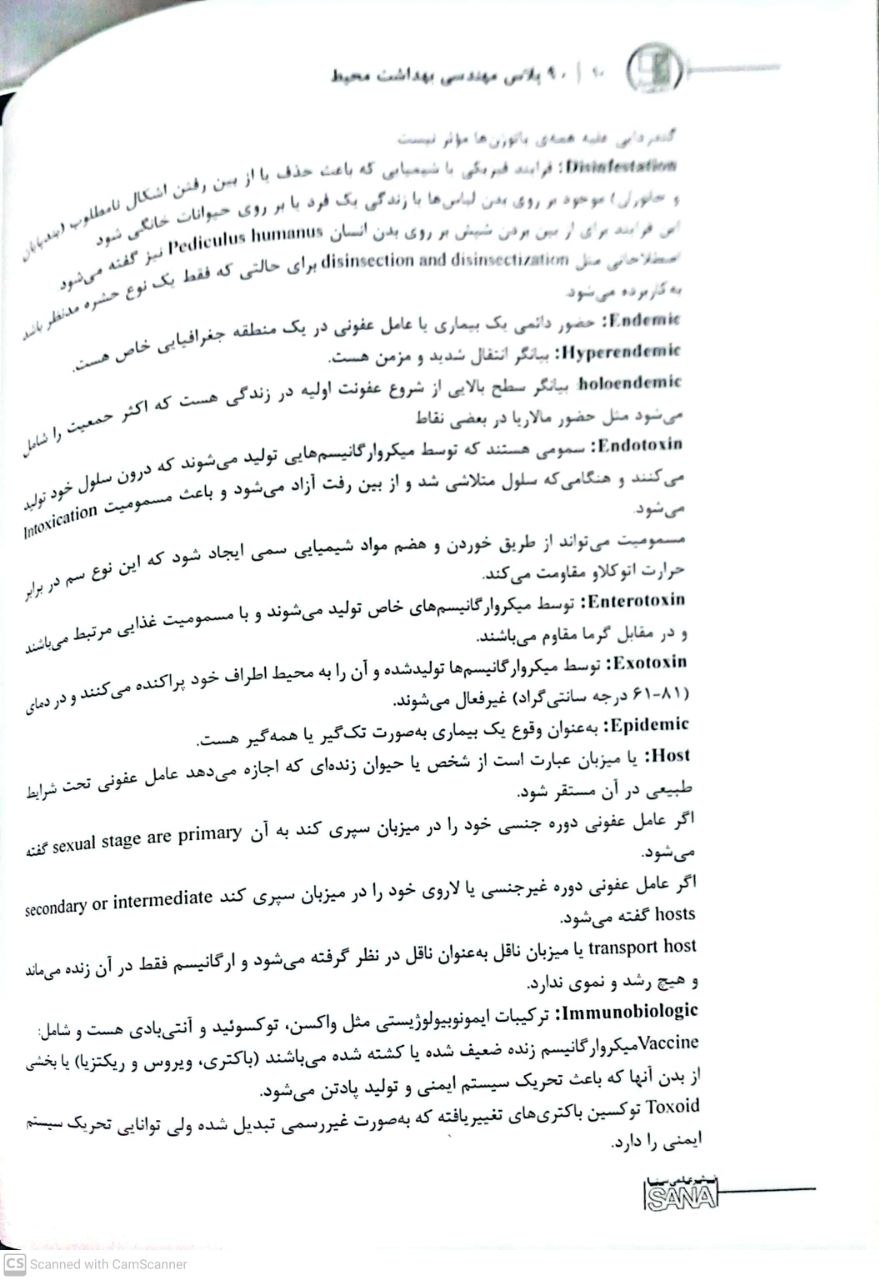 ۲۰ | ۹۰ پلاس مهندسی بهداشت محیط
گندزدایی علیه همه‌ی پاتوژن‌ها مؤثر نیست
Disinfestation: فرایند فیزیکی یا شیمیایی که باعث حذف یا از بین رفتن اشکال نامطلوب (بندپایان
و جانوران) موجود بر روی بدن لباس‌ها یا زندگی یک فرد یا بر روی حیوانات خانگی شود
این فرایند برای از بین بردن شپش بر روی بدن انسان Pediculus humanus نیز گفته می‌شود
اصطلاحاتی مثل disinsection and disinsectization برای حالتی که فقط یک نوع حشره مدنظر باشد
به‌کار برده می‌شود.
Endemic: حضور دائمی یک بیماری یا عامل عفونی در یک منطقه جغرافیایی خاص هست.
Hyperendemic: بیانگر انتقال شدید و مزمن هست.
holoendemic بیانگر سطح بالایی از شروع عفونت اولیه در زندگی هست که اکثر جمعیت را شامل
می‌شود مثل حضور مالاریا در بعضی نقاط
Endotoxin: سمومی هستند که توسط میکروارگانیسم‌هایی تولید می‌شوند که درون سلول خود تولید
می‌کنند و هنگامی‌که سلول متلاشی شد و از بین رفت آزاد می‌شود و باعث مسمومیت Intoxication
می‌شود.
مسمومیت می‌تواند از طریق خوردن و هضم مواد شیمیایی سمی ایجاد شود که این نوع سم در برابر
حرارت اتوکلاو مقاومت می‌کند.
Enterotoxin: توسط میکروارگانیسم‌های خاص تولید می‌شوند و با مسمومیت غذایی مرتبط می‌باشند
و در مقابل گرما مقاوم می‌باشند.
Exotoxin: توسط میکروارگانیسم‌ها تولیدشده و آن را به محیط اطراف خود پراکنده می‌کنند و در دمای
(۸۱-۶۱ درجه سانتی‌گراد) غیرفعال می‌شوند.
Epidemic: به‌عنوان وقوع یک بیماری به‌صورت تک‌گیر یا همه‌گیر هست.
Host: یا میزبان عبارت است از شخص یا حیوان زنده‌ای که اجازه می‌دهد عامل عفونی تحت شرایط
طبیعی در آن مستقر شود.
اگر عامل عفونی دوره جنسی خود را در میزبان سپری کند به آن sexual stage are primary گفته
می‌شود.
اگر عامل عفونی دوره غیرجنسی یا لاروی خود را در میزبان سپری کند secondary or intermediate
hosts گفته می‌شود.
transport host یا میزبان ناقل به‌عنوان ناقل در نظر گرفته می‌شود و ارگانیسم فقط در آن زنده می‌ماند
و هیچ رشد و نموی ندارد.
Immunobiologic: ترکیبات ایمونوبیولوژیستی مثل واکسن، توکسوئید و آنتی‌بادی هست و شامل:
Vaccineمیکروارگانیسم زنده ضعیف شده یا کشته شده می‌باشند (باکتری، ویروس و ریکتزیا) یا بخشی
از بدن آنها که باعث تحریک سیستم ایمنی و تولید پادتن می‌شود.
Toxoid توکسین باکتری‌های تغییریافته که به‌صورت غیررسمی تبدیل شده ولی توانایی تحریک سیستم
ایمنی را دارد.
نشر علمی سنا
SANA
CS Scanned with CamScanner